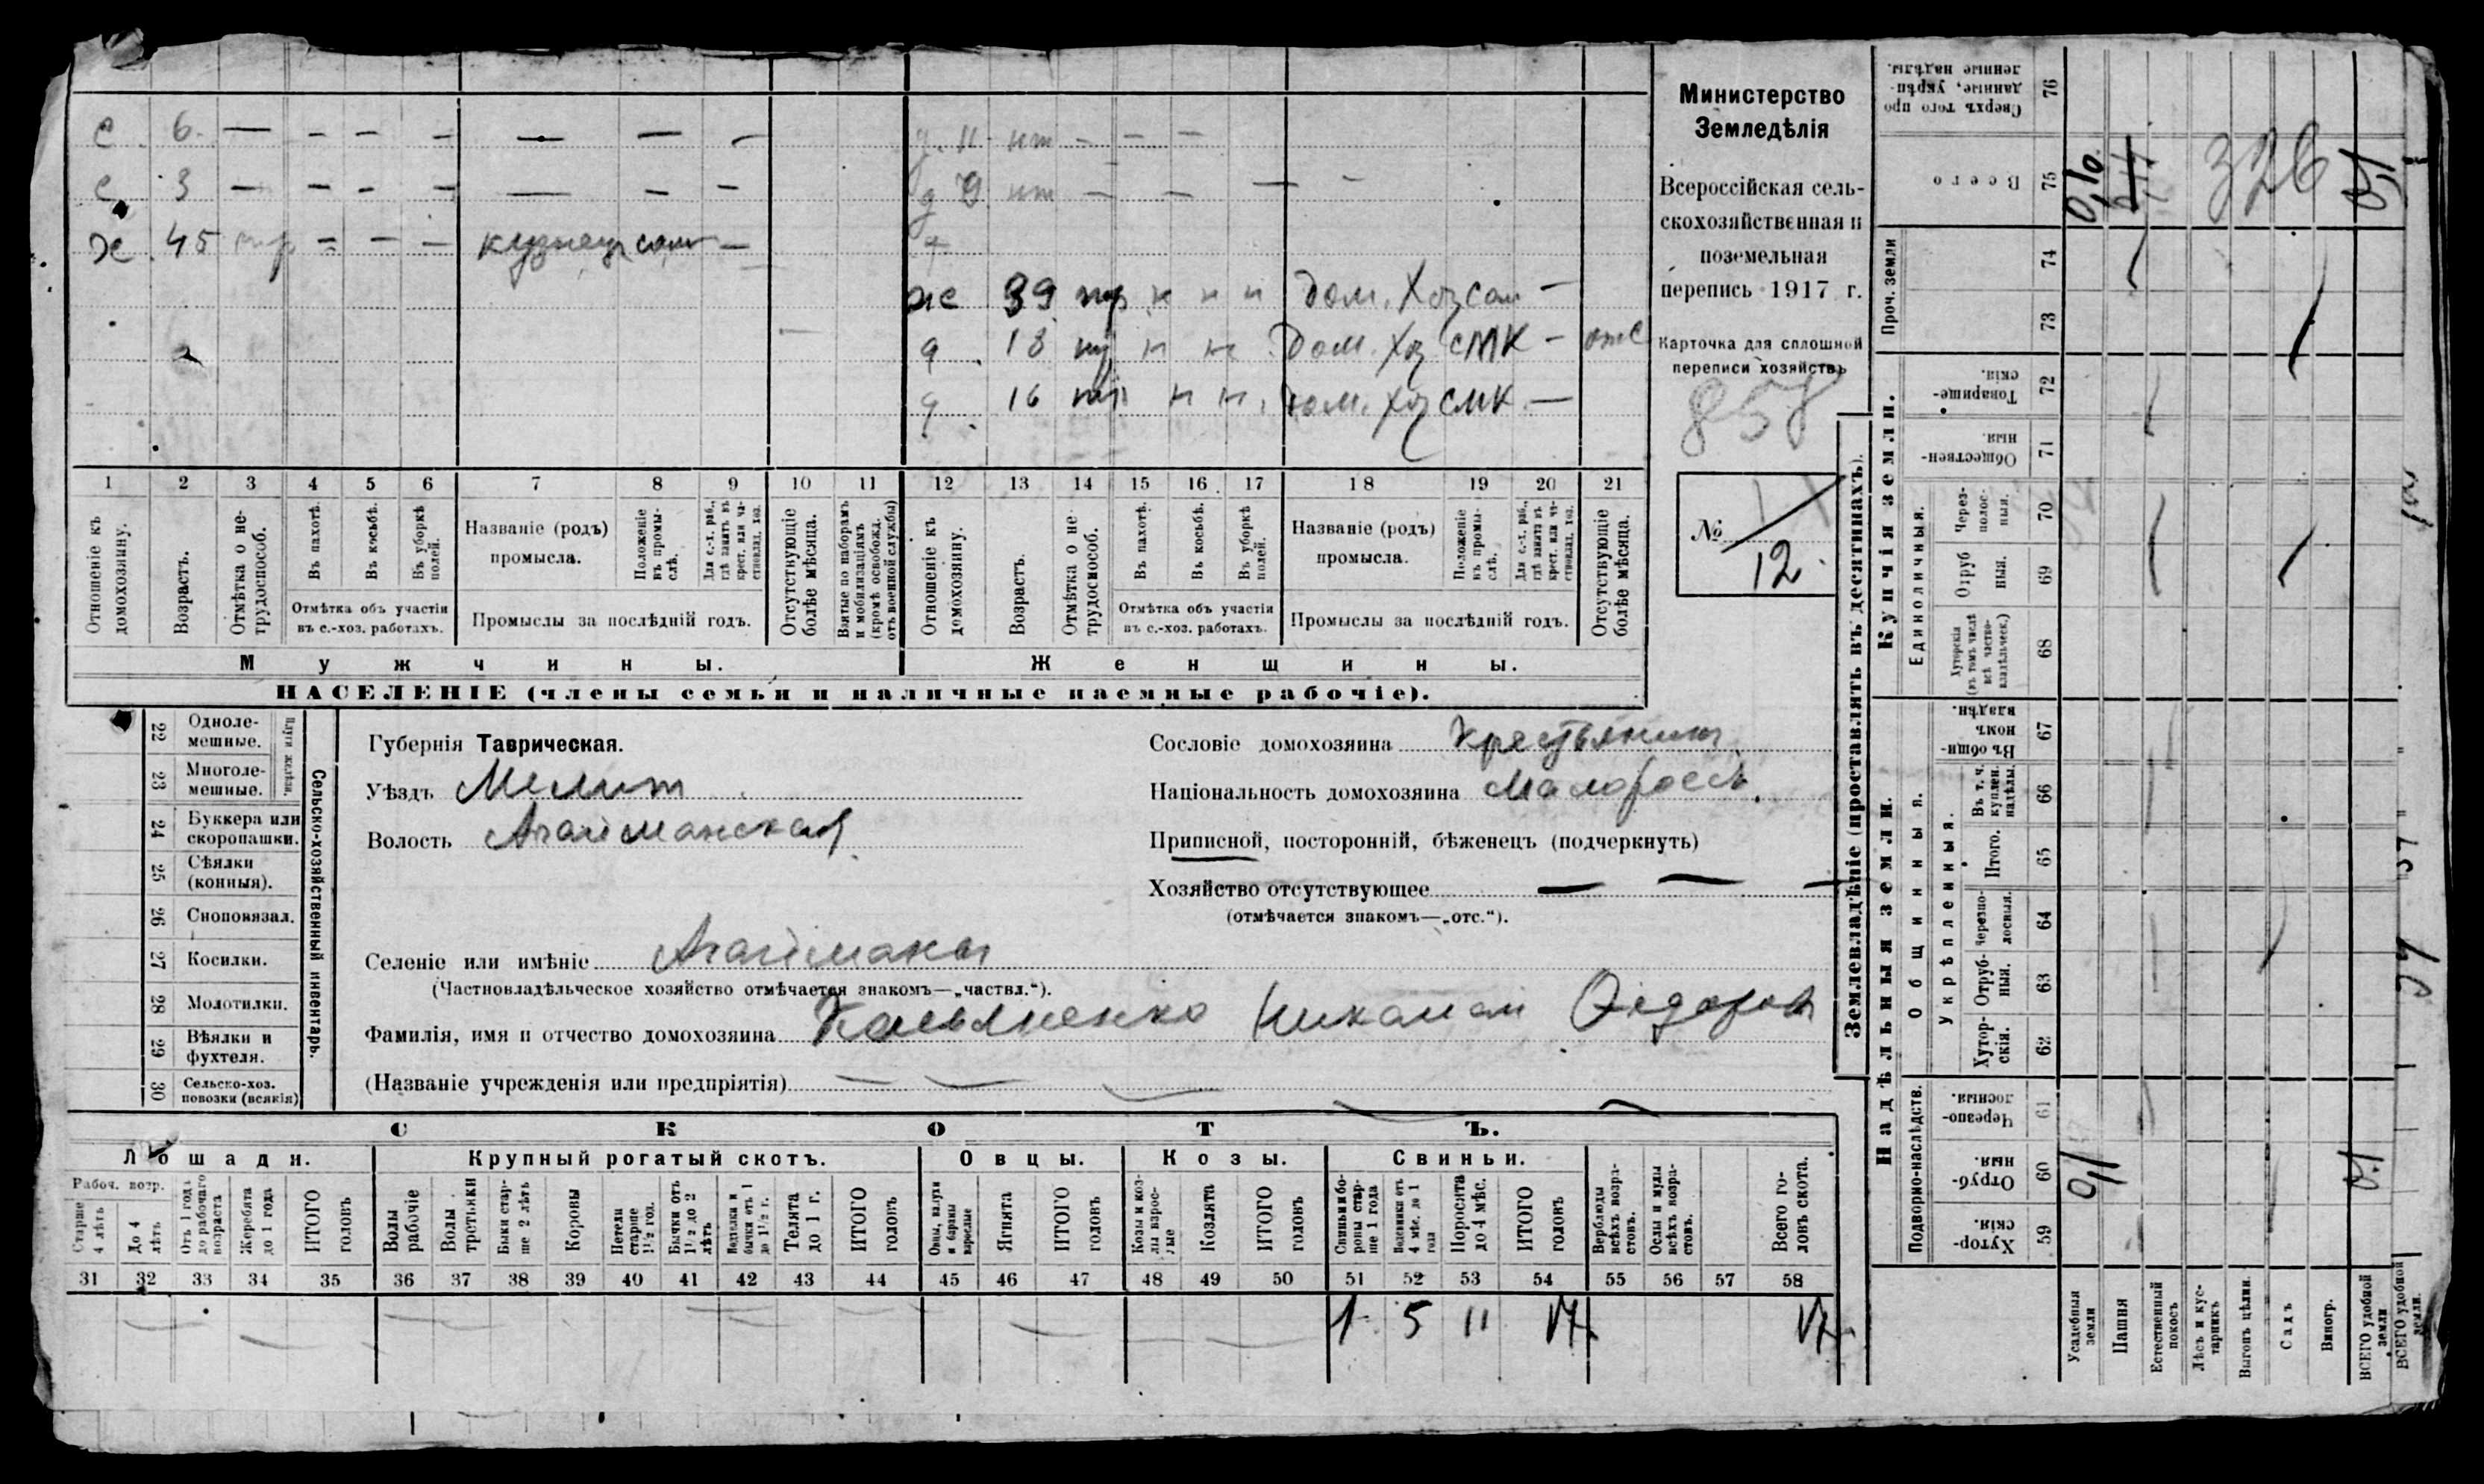 с 6 — — — — — — —
с 3 — — — — — — —
Х 45 тр — — — кузнец сам —
д 11 нт — — —
д 9 нт — — — —
ж 39 тр н н н дом. хоз сам —
д 18 н н Дом. хоз СМК — отс
д 16 н н дом. хоз СМК —
1 2 3 4 5 6 7 8 9 10 11 12 13 14 15 16 17 18 19 20 21
Отношеніе къ домохозяину.
Возрастъ.
Отмѣтка о нетрудоспособ.
Въ пахотѣ.
Въ косьбѣ.
Въ уборкѣ полей.
Отмѣтка объ участіи
въ с.-хоз. работахъ.
Названіе (родъ)
промысла.
Положеніе въ промыслѣ.
Для с.-х. раб., гдѣ занятъ въ крест. или частновлад. хоз.
Промыслы за послѣдній годъ.
Отсутствующіе болѣе мѣсяца.
Взятые по наборамъ и мобилизаціямъ (кромѣ освобожд. отъ военной службы)
Отношеніе къ домохозяину.
Возрастъ.
Отмѣтка о нетрудоспособ.
Въ пахотѣ.
Въ косьбѣ.
Въ уборкѣ полей.
Отмѣтка объ участіи
въ с.-хоз. работахъ.
Названіе (родъ)
промысла.
Положеніе въ промыслѣ.
Для с.-х. раб., гдѣ занятъ въ крест. или частновлад. хоз.
Промыслы за послѣдній годъ.
Отсутствующіе болѣе мѣсяца.
Мужчины.
Женщины.
НАСЕЛЕНІЕ (члены семьи и наличные наемные рабочіе).
Министерство
Земледѣлія
Всероссійская сель-
скохозяйственная и
поземельная
перепись 1917 г.
Карточка для сплошной
переписи хозяйствъ
858
№
12.
Сельско-хозяйственный инвентарь.
Плуги желѣзн.
22 Одноле-
мешные.
23 Многоле-
мешные.
24 Буккера или
скоропашки.
25 Сѣялки
(конныя).
26 Сноповязал.
27 Косилки.
28 Молотилки.
29 Вѣялки и
фухтеля.
30 Сельско-хоз.
повозки (всякія)
Губернія Таврическая.
Уѣздъ Мелит
Волость Агайманская
Селеніе или имѣніе Агайманы
(Частновладѣльческое хозяйство отмѣчается знакомъ—„частвл.“).
Фамилія, имя и отчество домохозяина Касьяненко Федоров
(Названіе учрежденія или предпріятія) — — — — —
Сословіе домохозяина Крестьянин
Національность домохозяина Малоросс
Приписной, посторонній, бѣженецъ (подчеркнуть)
Хозяйство отсутствующее — — —
(отмѣчается знакомъ—„отс.“).
СКОТЪ.
Лошади. Крупный рогатый скотъ. Овцы. Козы. Свиньи.
Рабоч. возр.
Старше 4 лѣтъ
До 4 лѣтъ
Отъ 1 года до рабочаго возраста
Жеребята до 1 года
ИТОГО головъ
Волы рабочіе
Волы третьяки
Быки старше 2 лѣтъ
Коровы
Нетели старше 1½ год.
Бычки отъ 1½ до 2 лѣтъ
Водълки и бычки отъ 1 до 1½ г.
Телята до 1 г.
ИТОГО головъ
Овцы, валухи и бараны взрослые
Ягнята
ИТОГО головъ
Козы и козлы взрослые
Козлята
ИТОГО головъ
Свиньи и боровы старше 1 года
Подсвинки отъ 4 мѣс. до 1 года
Поросята до 4 мѣс.
ИТОГО головъ
Верблюды всѣхъ возрастовъ.
Ослы и мулы всѣхъ возрастовъ.
Всего головъ скота.
31 32 33 34 35 36 37 38 39 40 41 42 43 44 45 46 47 48 49 50 51 52 53 54 55 56 57 58
1 5 11 17 17
Землевладѣніе (проставлять въ десятинахъ).
Купчія земли.
Надѣльныя земли.
Сверхъ того проданные, укрѣпленные надѣлы. 76
Всего 75
0,10 326 0,1
Проч. земли 74
73
Товарищескія. 72
Общественныя. 71
Единоличныя.
Черезполосныя. 70
Отрубныя. 69
Хуторскія (въ томъ числѣ всѣ частновладѣльческ.) 68
Общинныя.
Въ общинномъ владѣн. 67
Укрѣпленныя.
Въ т. ч. куплен. надѣлы. 66
Итого. 65
Черезполосныя. 64
Отрубныя. 63
Хуторскія. 62
Подворно-наслѣдств.
Черезполосныя. 61
Отрубныя. 60
0,1 0,1
Хуторскія 59
Усадебныя земли
Пашня
Естественный покосъ
Лѣсъ и кустарникъ
Выгонъ цѣлин.
Садъ
Виногр.
ВСЕГО удобной земли
ВСЕГО удобной земли.